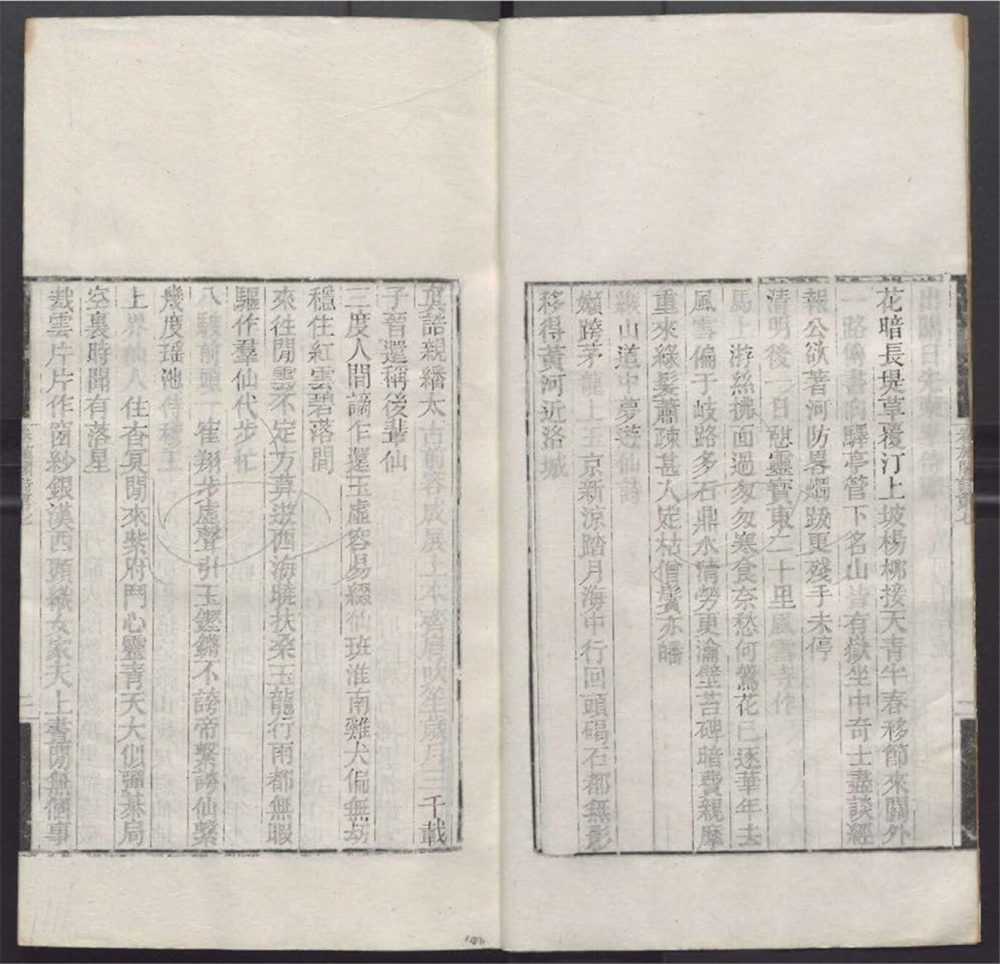 花暗長堤草覆汀上坡楊柳接天青半春移節來關外
一路傳書向驛亭管下名山皆有嶽坐中奇士盡談經
報公欲著河防畧燭跋更殘手未停
清明後一日憩靈寶東二十里風雪
馬上游絲拂面過匆匆寒食奈愁何鶯花已逐華年去
風雪偏于岐路多石鼎水清勞更瀹壁苔碑暗費親摩
重來綠髪蕭疎甚人定枯僧鬢亦皤
緱山道中夢遊仙詩
嬾跨茅龍上玉京新涼踏月海中行回頭碣石都無影
移得黃河近洛城
真誥親繙太古前容成展上不齊肩吹笙歲月三千載
子晉還稱後輩仙
三度人間謫乍還玉虛容易綴仙班淮南雞犬偏無劫
穩住紅雲碧落間
來往閒雲不定方算遊西海曉扶桑玉龍行雨都無暇
驅作羣仙代步忙
八駿前頭一隺翔步虛聲引玉鏗鏘不誇帝繫誇仙繫
幾度瑶池侍穆王
上界仙人住杳冥閒來紫府鬥心靈青天大似彈棊局
空裏時聞有落星
裁雲片片作窗紗銀漢西頭織女家天上書閒無個事